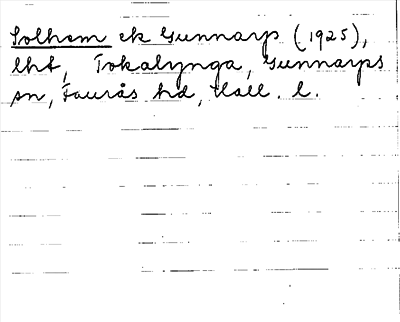 Solhem ek Gunnarp (1925),
lht, Tokalynga, Gunnarps
sn, Faurås hd, Hall. l.